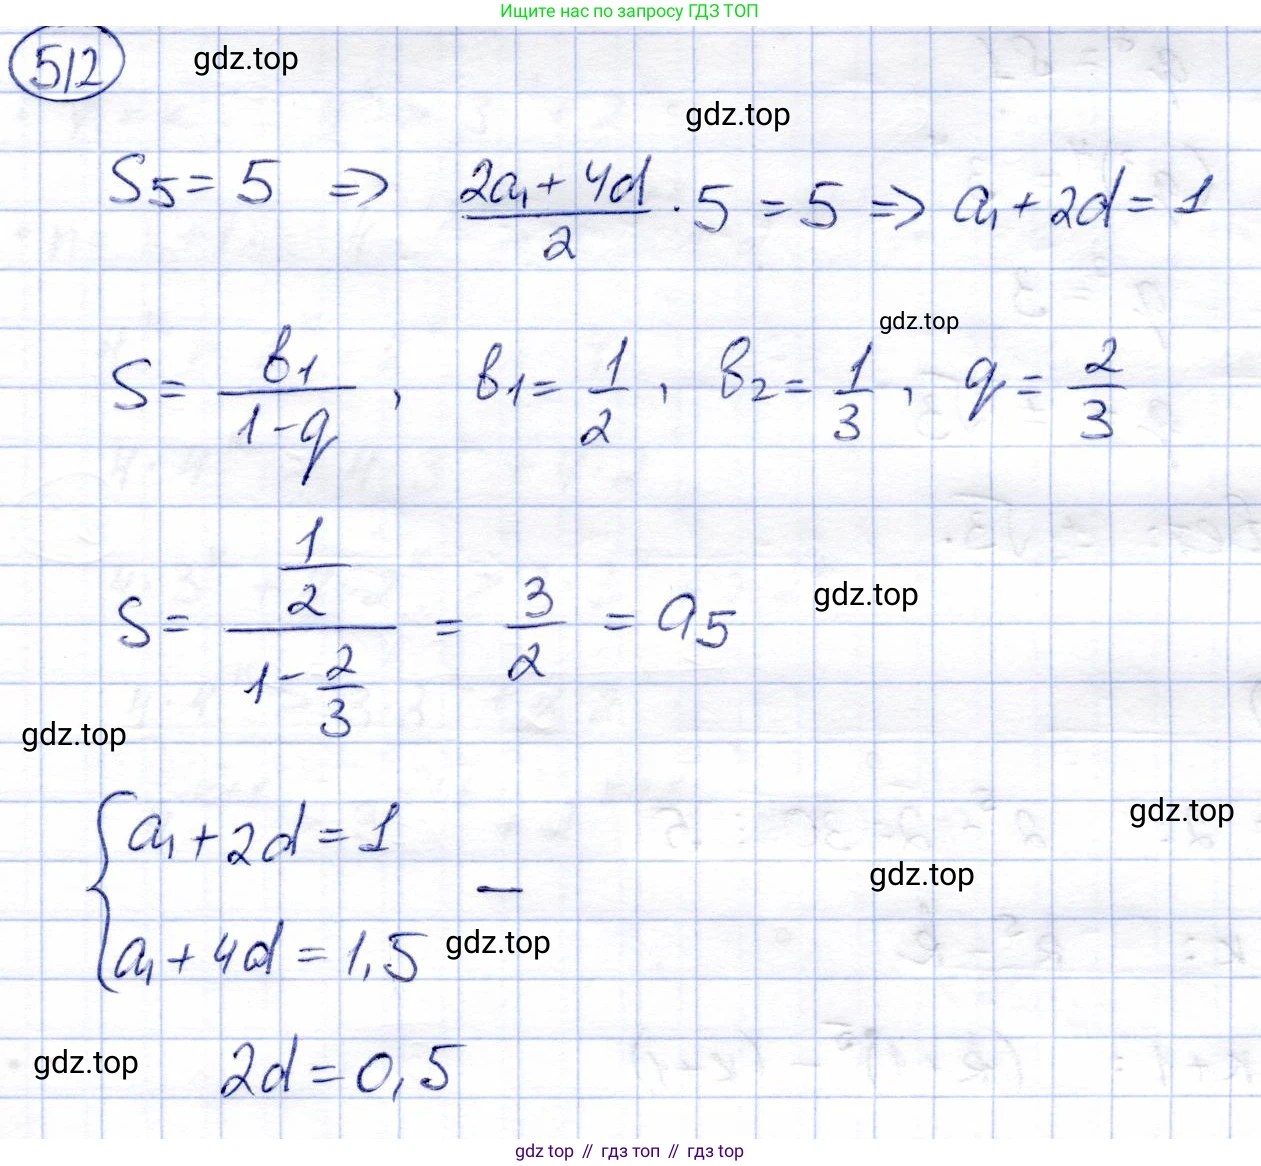 Ищите нас по запросу ГДЗ ТОП
512
gdz.top
gdz.top
S₅ = 5 ⇒ (2a₁ + 4d)/2 · 5 = 5 ⇒ a₁ + 2d = 1
gdz.top
S = b₁/(1 - q), b₁ = 1/2, b₂ = 1/3, q = 2/3
S = (1/2)/(1 - 2/3) = 3/2 = a₅
gdz.top
gdz.top
{ a₁ + 2d = 1
gdz.top
—
gdz.top
a₁ + 4d = 1,5
gdz.top
gdz.top
2d = 0,5
gdz top // гдз топ // gdz top